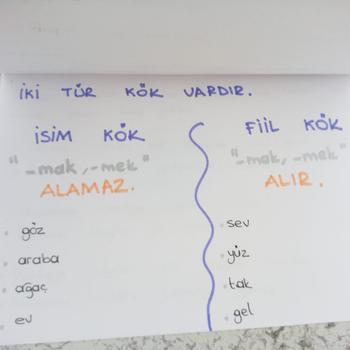 İKİ TÜR KÖK VARDIR.
İSİM KÖK
"-mak, -mek"
ALAMAZ.
göz
araba
ağaç
ev
FİİL KÖK
"-mak, -mek"
ALIR.
sev
yüz
tak
gel